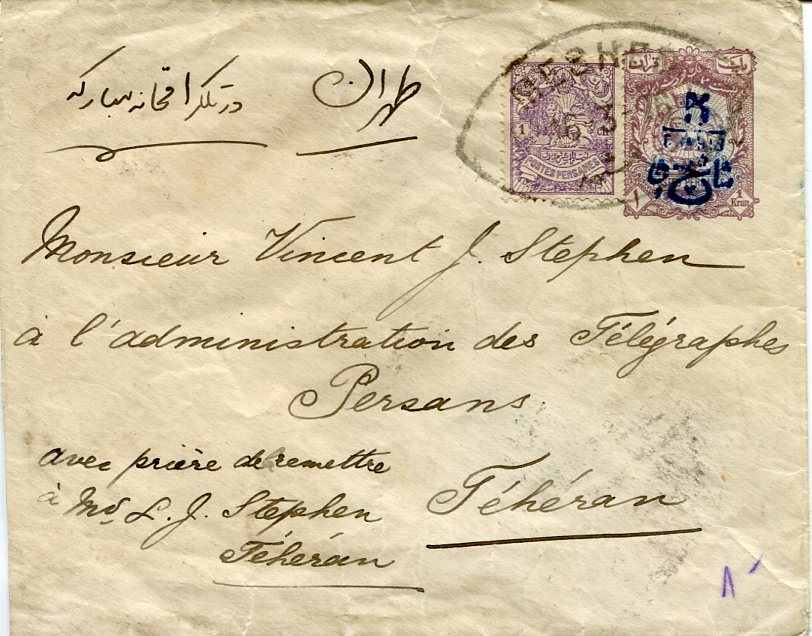 طهران در تلگرافخانه مبارکه
1
POSTES PERSANES
1 Kran
Monsieur Vincent J. Stephen
à l'administration des Télégraphes
Persans
Téhéran
avec prière de remettre
à Mr. L. J. Stephen
Téhéran